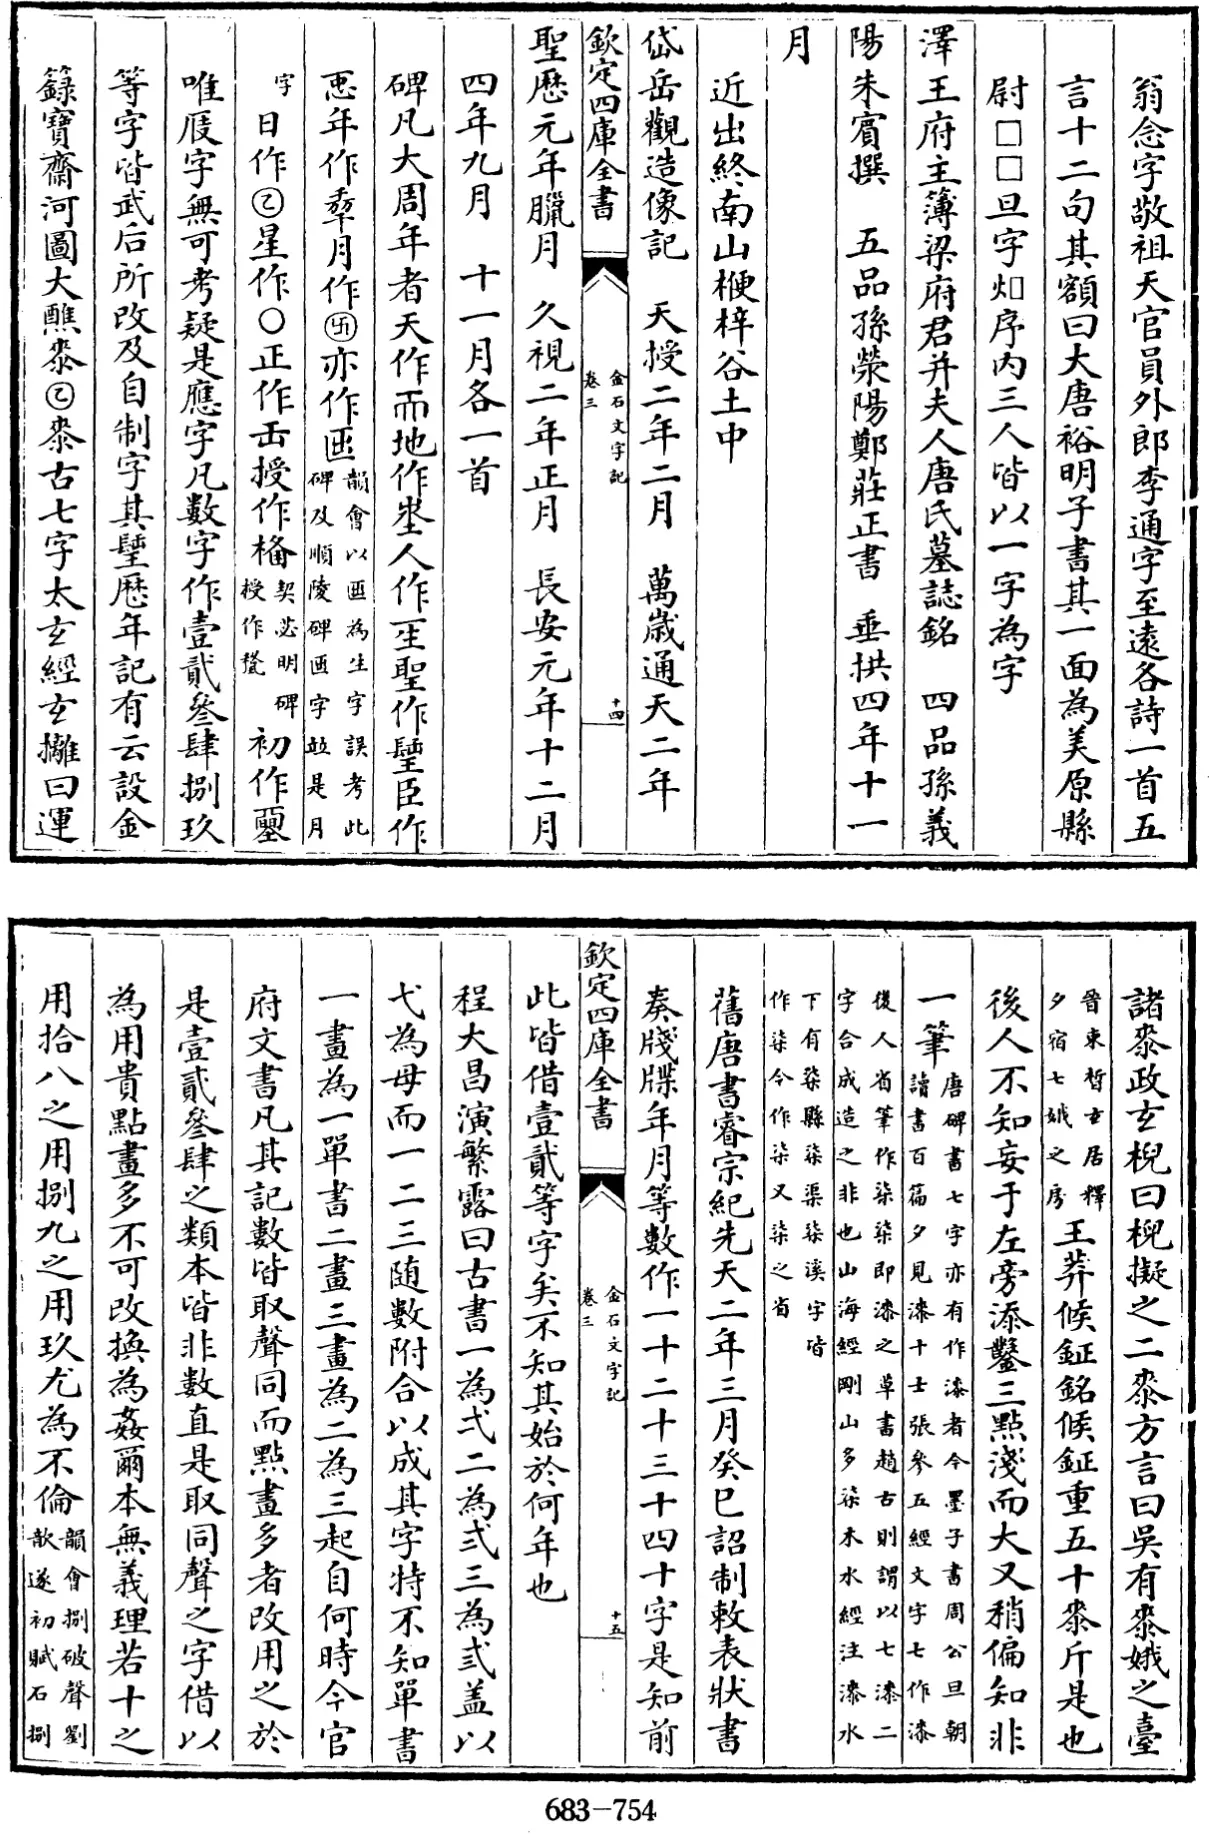 翁念字敬祖天官員外郎李通字至遠各詩一首五
言十二句其額曰大唐裕明子書其一面為美原縣
尉□□旦字㶥□序內三人皆以一字為字
澤王府主簿梁府君并夫人唐氏墓誌銘　四品孫義
陽朱賓撰　五品孫滎陽鄭莊正書　垂拱四年十一
月
近出終南山楩梓谷土中
岱岳觀造像記　天授二年二月　萬歲通天二年
欽定四庫全書
金石文字記
卷三
十四
聖歷元年臘月　久視二年正月　長安元年十二月
四年九月　十一月各一首
碑凡大周年者天作𠀑地作埊人作𤯔聖作𨲢臣作
𢘑年作𠡦月作㊉亦作𠥱韻會以𠥱為生字誤考此
碑及順陵碑𠥱字並是月
字日作㋛星作〇正作𠙺授作𥠢契苾明碑
授作𥠢初作𡔈
唯𢈔字無可考疑是應字凡數字作壹貳叄肆捌玖
等字皆武后所改及自制字其𨲢歷年記有云設金
籙寶齋河圖大醮桼㋛桼古七字太玄經玄攡曰運
諸桼政玄棿曰棿擬之二桼方言曰吳有桼娥之臺
晉束晳玄居釋
夕宿七娥之房王莽候鉦銘候鉦重五十桼斤是也
後人不知妄于左旁添鑿三點淺而大又稍偏知非
一筆唐碑書七字亦有作漆者今墨子書周公旦朝
讀書百篇夕見漆十士張參五經文字七作漆
後人省筆作柒柒即漆之草書趙古則謂以七漆二
字合成造之非也山海經剛山多柒木水經注漆水
下有柒縣柒渠柒溪字皆
作柒今作柒又柒之省
舊唐書睿宗紀先天二年三月癸巳詔制敕表狀書
奏牋牒年月等數作一十二十三十四十字是知前
欽定四庫全書
金石文字記
卷三
十五
此皆借壹貳等字矣不知其始於何年也
程大昌演繁露曰古書一為弌二為弍三為弎蓋以
弋為母而一二三随數附合以成其字特不知單書
一畫為一單書二畫三畫為二為三起自何時今官
府文書凡其記數皆取聲同而點畫多者改用之於
是壹貳叄肆之類本皆非數直是取同聲之字借以
為用貴點畫多不可改換為姦爾本無義理若十之
用拾八之用捌九之用玖尤為不倫韻會捌破聲劉
歆遂初賦石捌
683-754